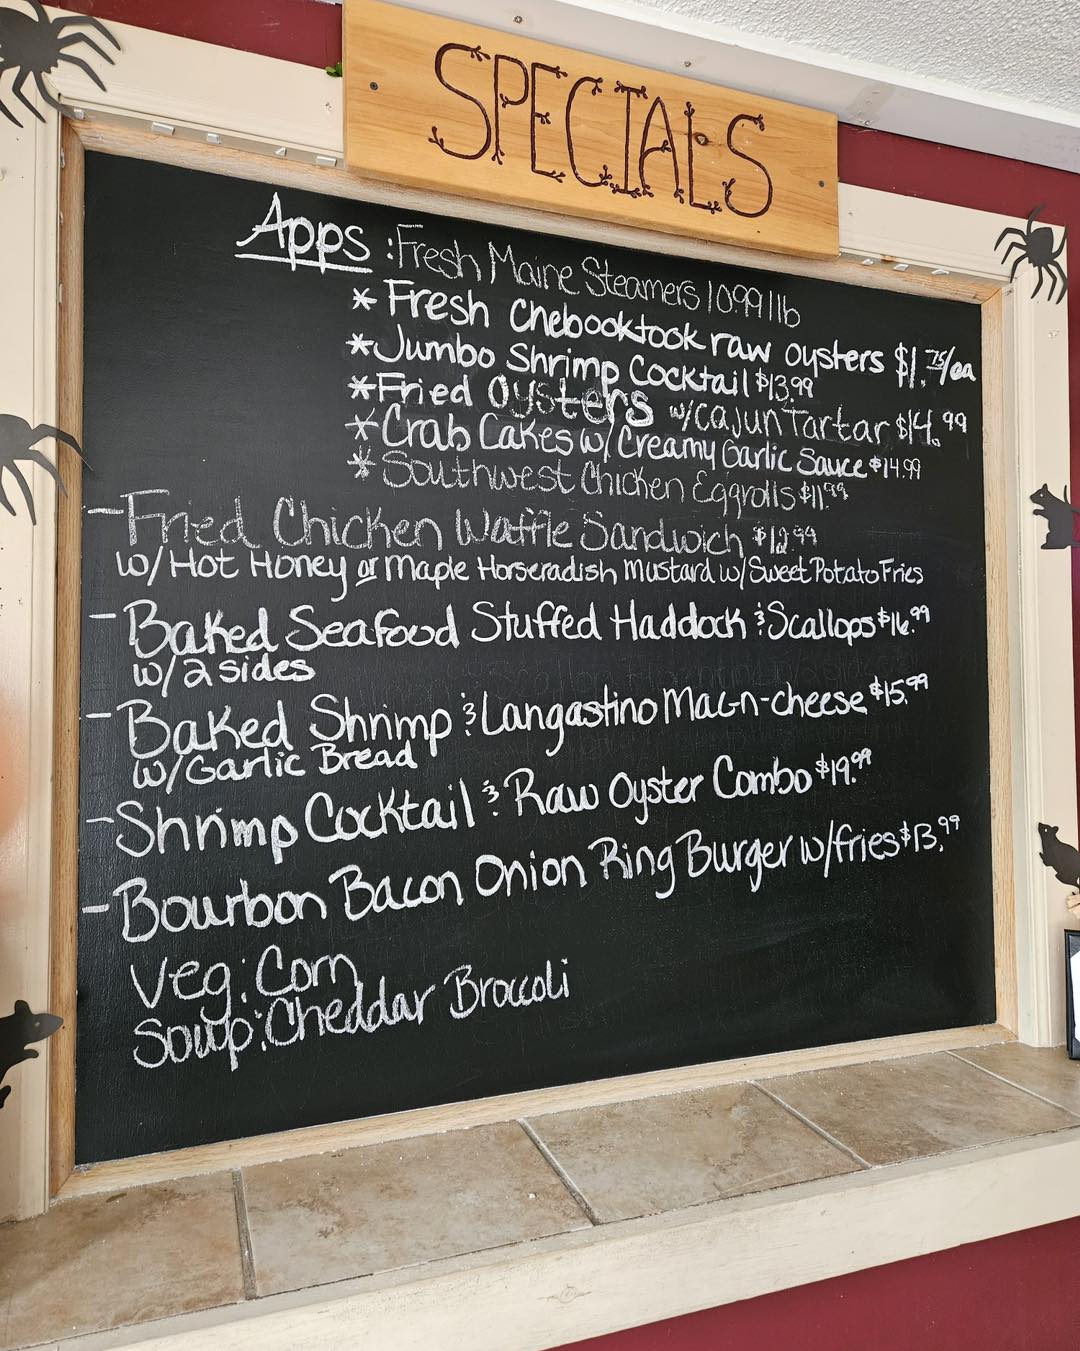 SPECIALS
Apps: Fresh Maine Steamers 10.99 1lb
* Fresh Chebooktook raw oysters $1.75/ea
* Jumbo Shrimp Cocktail $13.99
* Fried Oysters w/Cajun Tartar $14.99
* Crab Cakes w/ Creamy Garlic Sauce $14.99
* Southwest Chicken Eggrolls $11.99
- Fried Chicken Waffle Sandwich $12.99
w/Hot Honey or Maple Horseradish Mustard w/Sweet Potato Fries
- Baked Seafood Stuffed Haddock & Scallops $16.99
w/2 sides
- Baked Shrimp & Langastino Mac-n-cheese $15.99
w/Garlic Bread
- Shrimp Cocktail & Raw Oyster Combo $19.99
- Bourbon Bacon Onion Ring Burger w/fries $13.99
Veg: Corn
Soup: Cheddar Broccoli